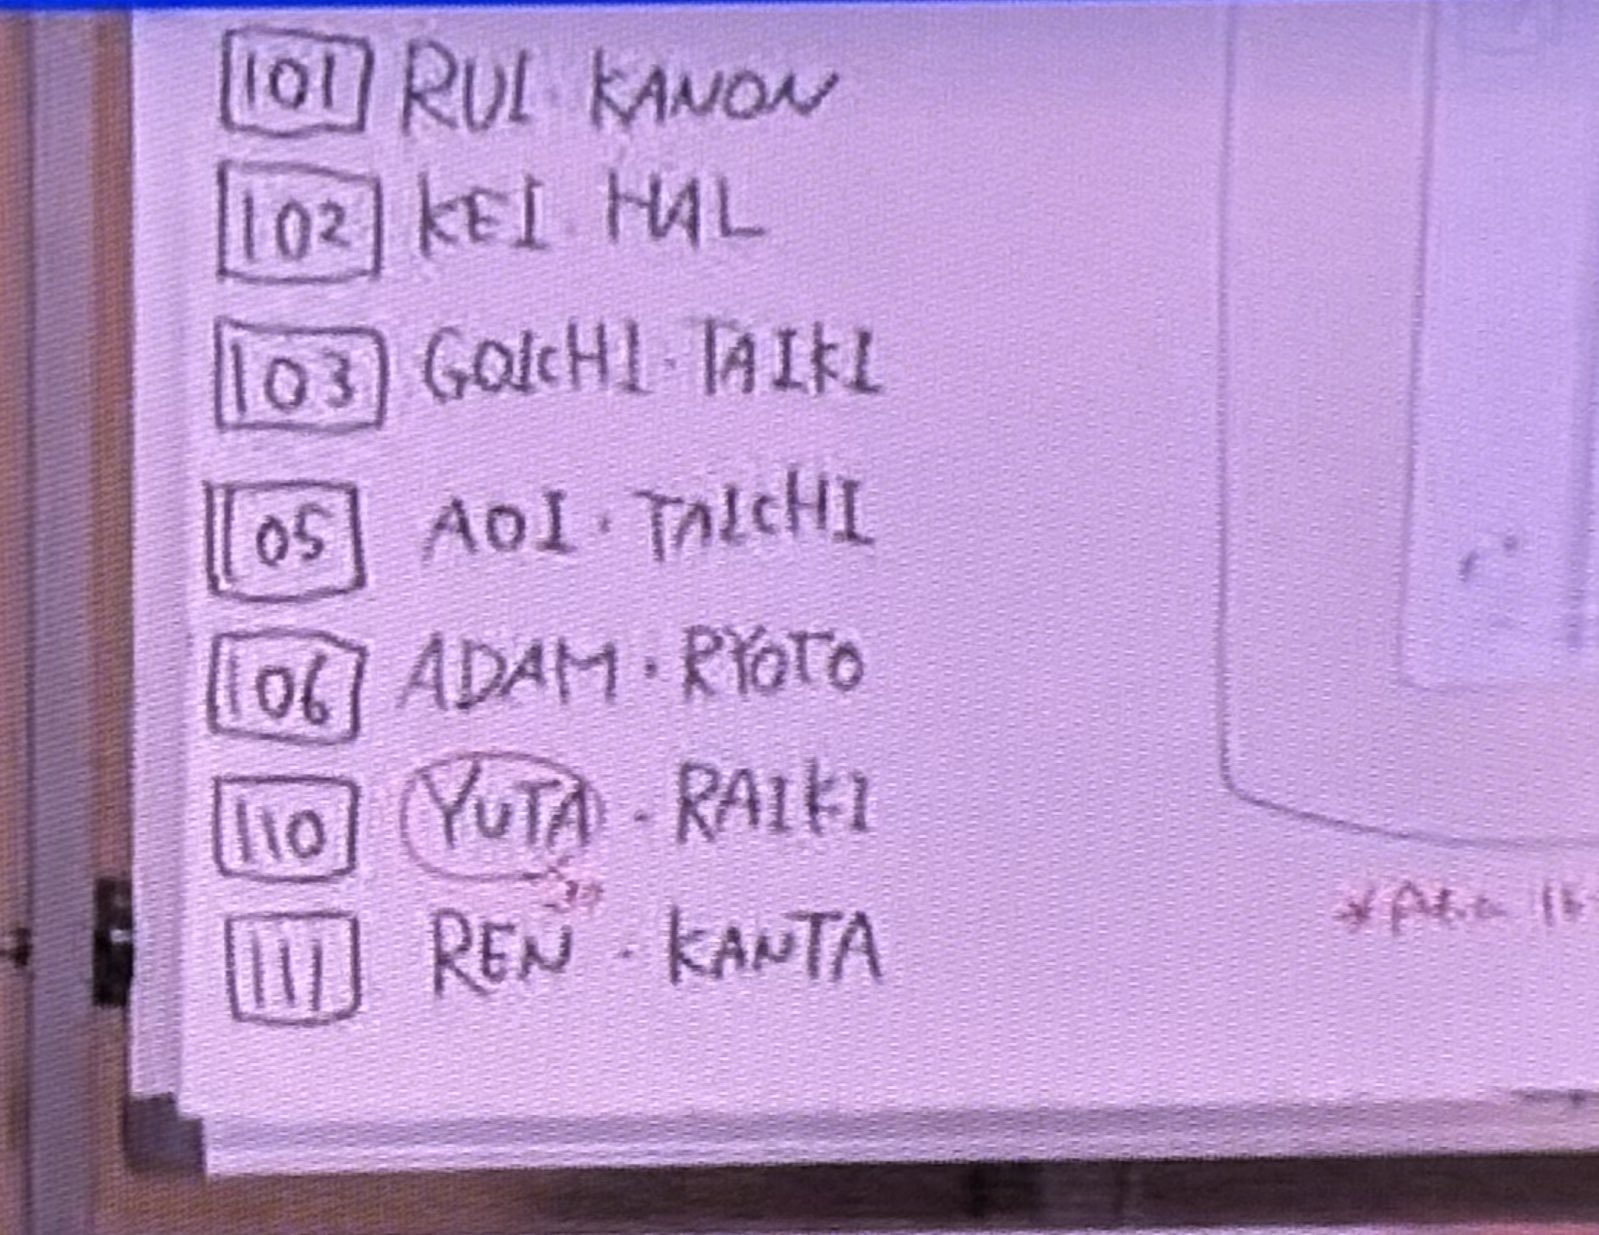 101 RUI KANON
102 KEI HAL
103 GOICHI·TAIKI
105 AOI·TAICHI
106 ADAM·RYOTO
110 YUTA·RAIKI
111 REN·KANTA